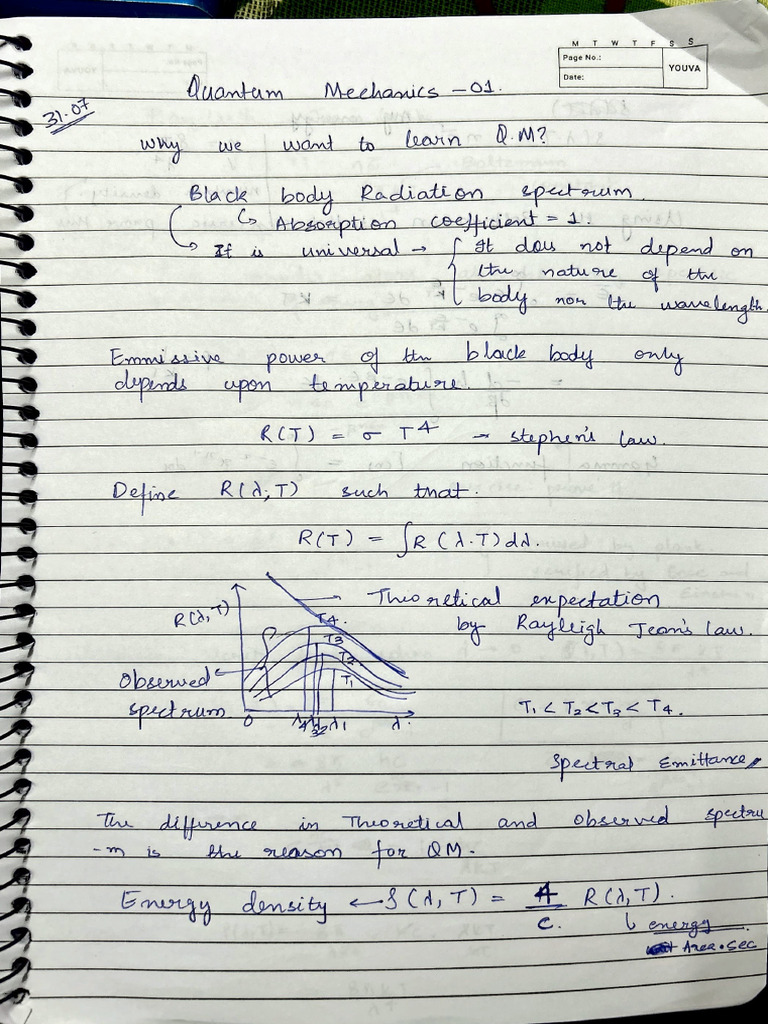 M T W T F S S
Page No.:
YOUVA
Date:
Quantum Mechanics -01.
31.07
Why we want to learn Q.M?
Black body Radiation spectrum.
↳ Absorption coefficient = 1.
→ It is universal → { It does not depend on
the nature of the
body nor the wavelength.
Emmissive power of the black body only
depends upon temperature.
R(T) = σ T⁴ → stephen's law.
Define R(λ,T) such that.
R(T) = ∫R (λ.T) dλ.
R(λ,T)
Theoretical expectation
by Rayleigh Jean's law.
T4.
T3
T2
T1
Observed
spectrum
0 λ4 λ3 λ2 λ1 λ.
T1 < T2 < T3 < T4.
Spectral Emittance
The difference in Theoretical and observed spectru
-m is the reason for QM.
Energy density ← ρ(λ,T) = 4/c. R(λ,T).
↳ energy
Area•sec